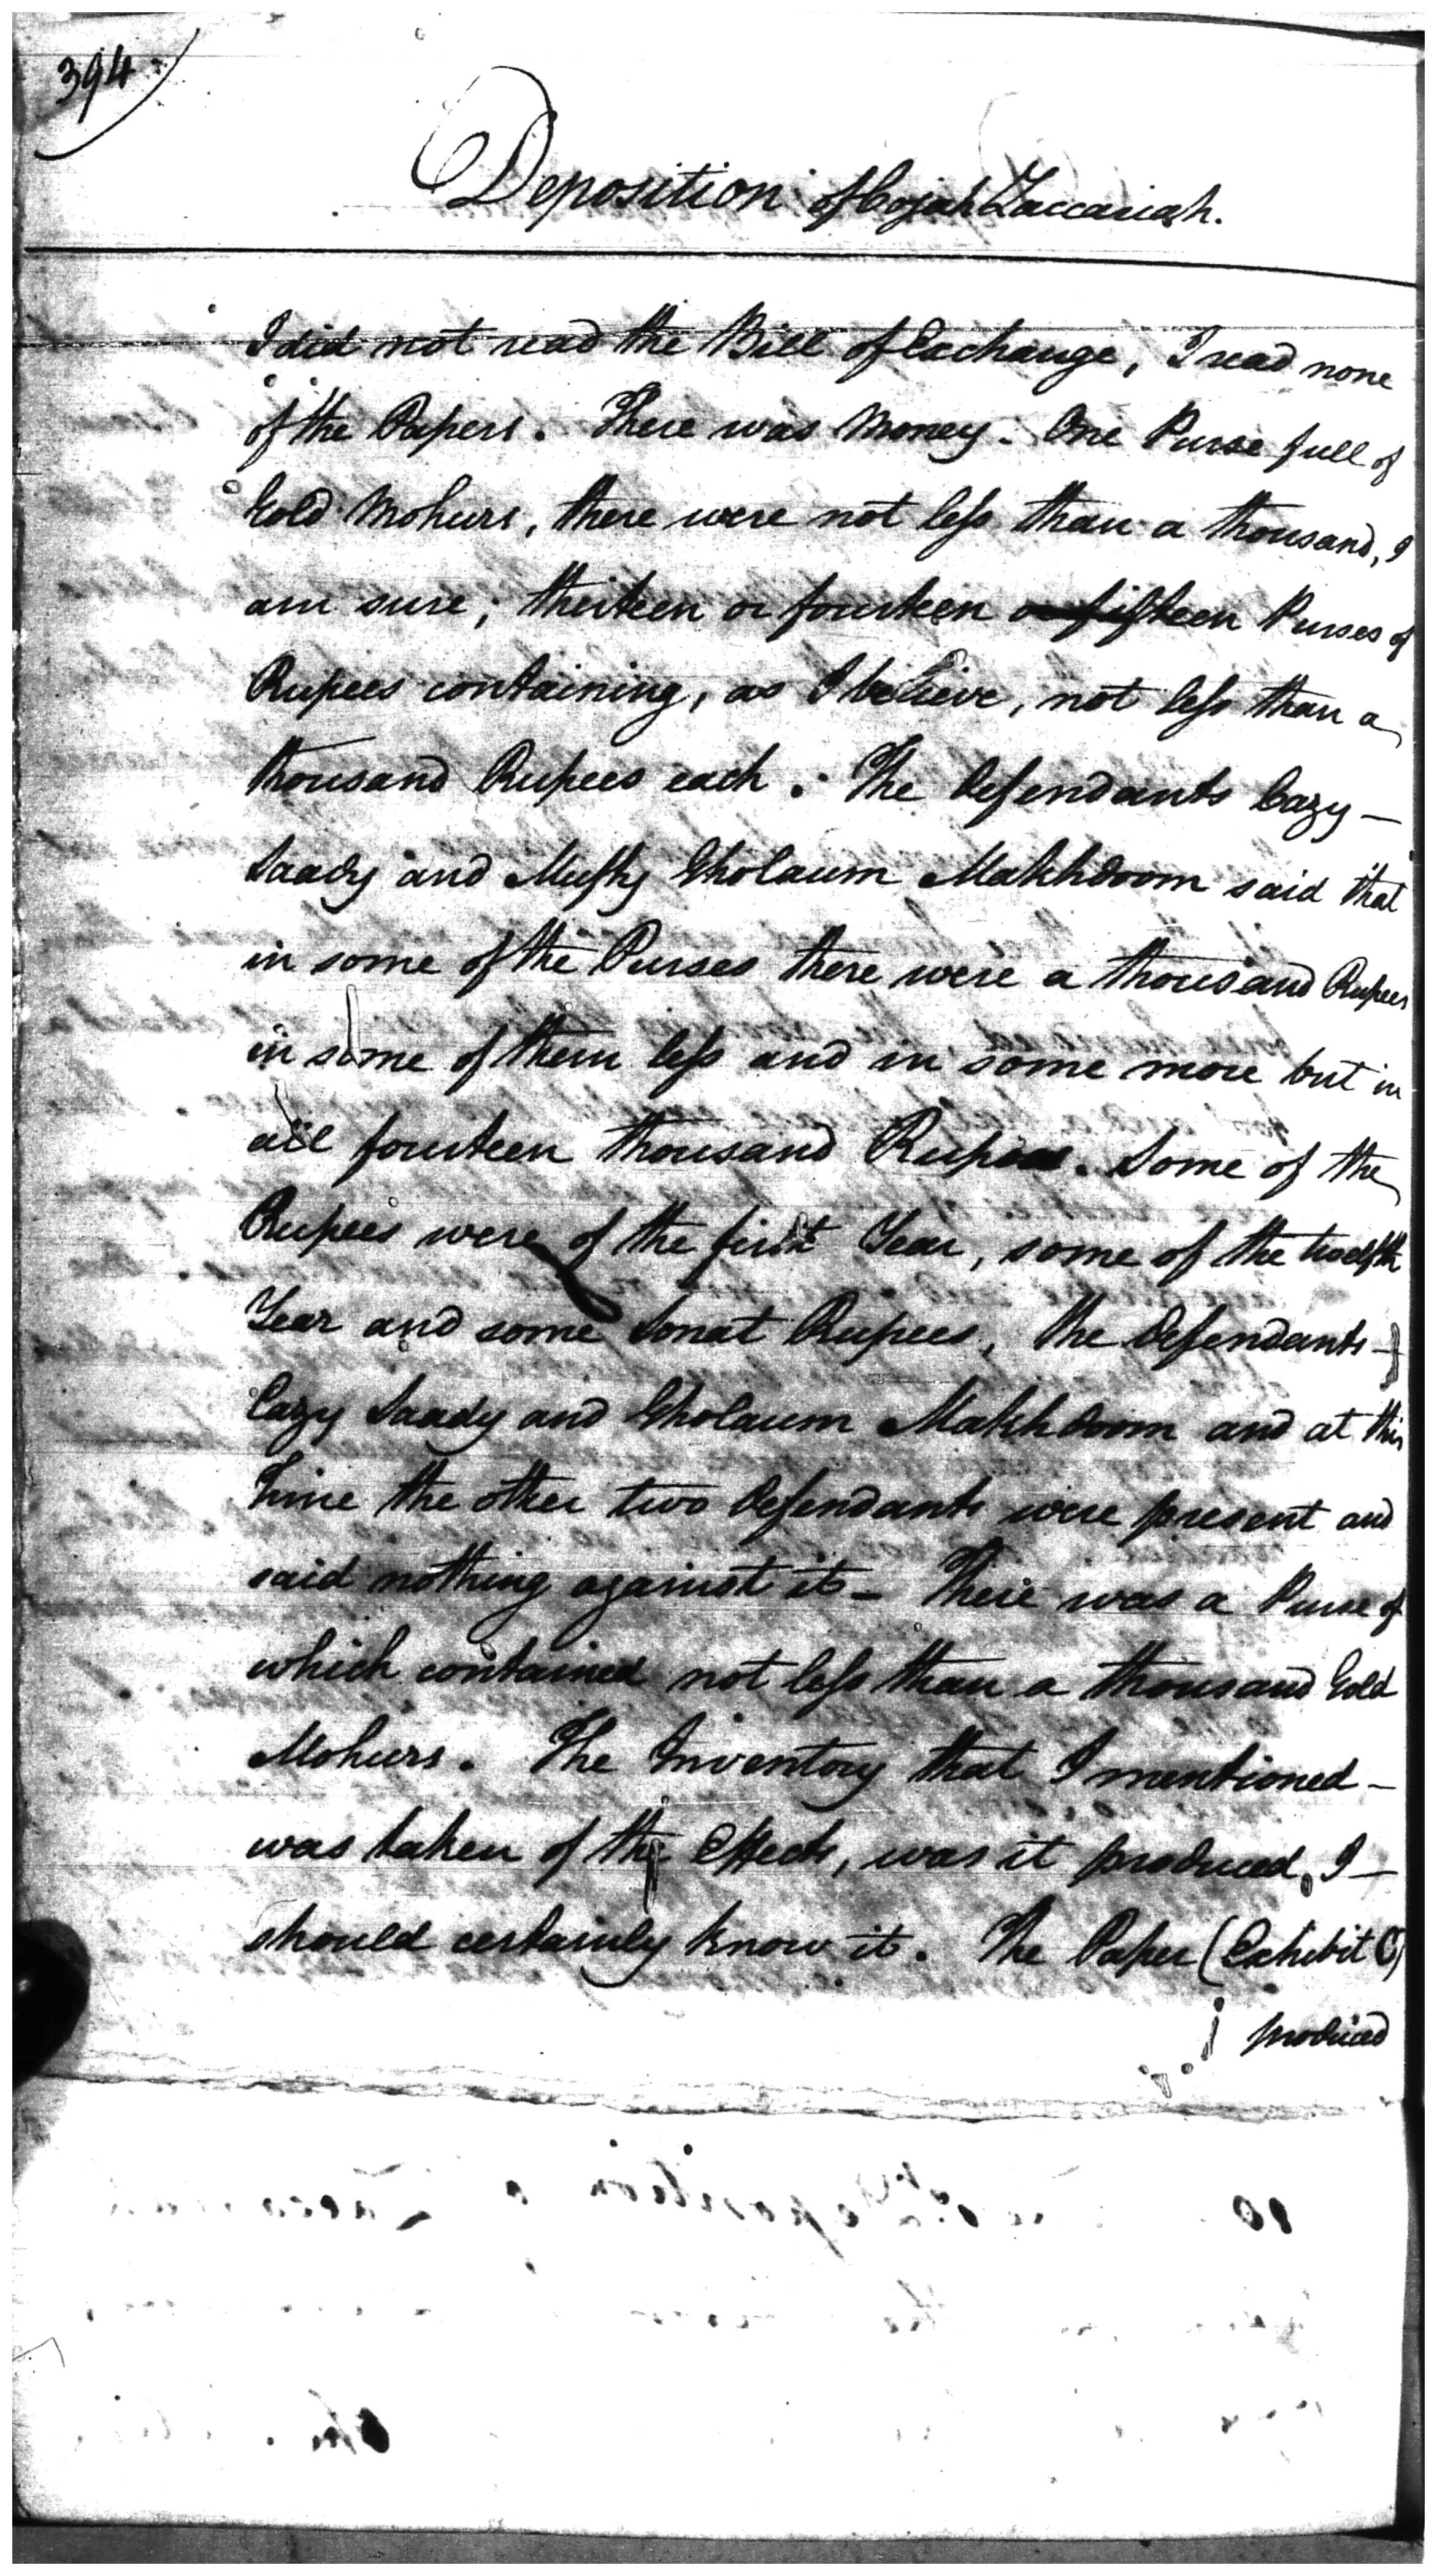 394
Deposition of Cojah Zaccariah.
I did not read the Bill of Exchange, I read none
of the Papers. There was Money. One Purse full of
Gold Mohurs, there were not less than a thousand, I
am sure; thirteen or fourteen or fifteen Purses of
Rupees containing, as I believe, not less than a
thousand Rupees each. The Defendants Cazy-
Saady and Mufty Gholaum Makhdoom said that
in some of the Purses there were a thousand Rupees
in some of them less and in some more but in
all fourteen thousand Rupees. Some of the
Rupees were of the first Year, some of the twelfth
Year and some Sonat Rupees, the Defendants-
Cazy Saady and Gholaum Makhdoom and at this
Time the other two Defendants were present and
said nothing against it - There was a Purse of
which contained not less than a thousand Gold
Mohurs. The Inventory that I mentioned-
was taken of the Effects, was it produced, I-
should certainly know it. The Paper (Exhibit C)
produced